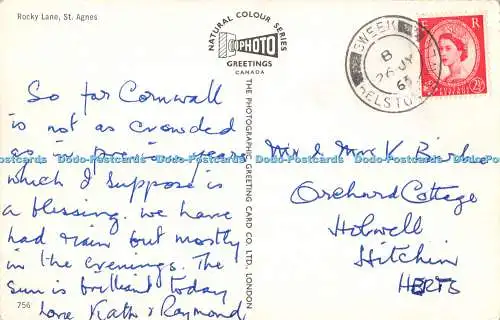 Rocky Lane, St. Agnes
So far Cornwall
is not as crowded
as in previous years
which I suppose is
a blessing. we have
had rain but mostly
in the evenings. The
sun is brilliant today
Love Kath & Raymond
756
NATURAL COLOUR SERIES
PHOTO
GREETINGS
CANADA
THE PHOTOGRAPHIC GREETING CARD CO. LTD., LONDON
GWEEK
B
26 JY
65
HELSTON
E R
2½
Mr & Mrs V
Orchard Cottage
Holwell
Hitchin
HERTS
Dodo-Postcards Dodo-Postcards Dodo-Postcards Dodo-Postcards Dodo-Postcards Dodo-Postcards